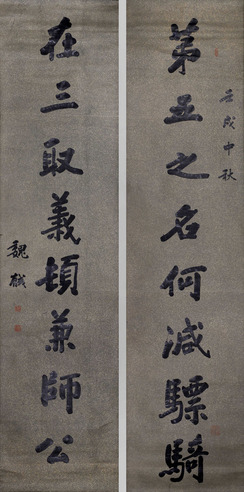 第五之名何減驃騎
壬戌中秋
在三取義頓兼師公
魏戫